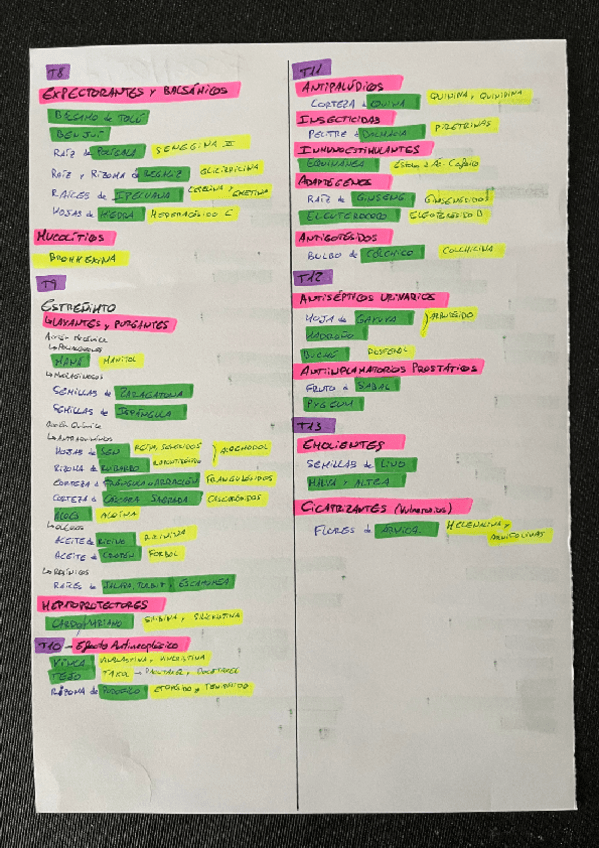 T8
EXPECTORANTES Y BALSÁMICOS
BÁLSAMO de TOLÚ
BENJUÍ
RAÍZ de POLÍGALA SENEGINA II
RAÍZ Y RIZOMA d REGALIZ GLICIRRICINA
RAÍCES de IPECUANA CEFELINA Y EMETINA
HOJAS de HIEDRA HEDERACÓSIDO C
MUCOLÍTICOS
BROMHEXINA
T9
ESTREÑIMTO
LAXANTES Y PURGANTES
Acción Mecánica
MANÁ MANITOL
SEMILLAS de ZARAGATONA
SEMILLAS de ISPÁGULA
Acción Química
HOJAS de SEN REÍNA, SENÓSIDOS
RIZOMA de RUIBARBO
CORTEZA d FRÁNGULA FRANGULÓSIDOS
CORTEZA d CÁSCARA SAGRADA CASCARÓSIDOS
ALOES ALOÍNA
ACEITE de RICINO RICININA
ACEITE de CROTÓN FORBOL
RAÍCES de JALAPA, TURBIT Y ESCAMONEA
HEPTOPROTECTORES
CARDO MARIANO SILIBINA Y SILICRISTINA
T10 - Efecto Antineoplásico
VINCA VINBLASTINA, VINCRISTINA
TEJO TAXOL → PACLITAXEL Y DOCETAXEL
RIZOMA de PODOFILO ETOPÓSIDO Y TENIPÓSIDO
T11
ANTIPALÚDICOS
CORTEZA d QUINA QUININA Y QUINIDINA
INSECTICIDAS
PELITRE d DALMACIA PIRETRINAS
INMUNOESTIMULANTES
EQUINACEA Ésteres d Ac. Cafeico
ADAPTÓGENOS
RAÍZ de GINSENG GINSENÓSIDOS
ELEUTEROCOCO ELEUTERÓSIDO B
ANTIGOTOSOS
BULBO de CÓLCHICO COLCHICINA
T12
ANTISÉPTICOS URINARIOS
HOJA de GAYUBA } ARBUTÓSIDO
MADROÑO
BUCHÚ DIOSFENOL
ANTIINFLAMATORIOS PROSTÁTICOS
FRUTO d SABAL
PYGEUM
T13
EMOLIENTES
SEMILLAS de LINO
MALVA Y ALTEA
CICATRIZANTES (Vulnerarios)
FLORES d ARNICA HELENALINA Y
ARNIFOLINAS